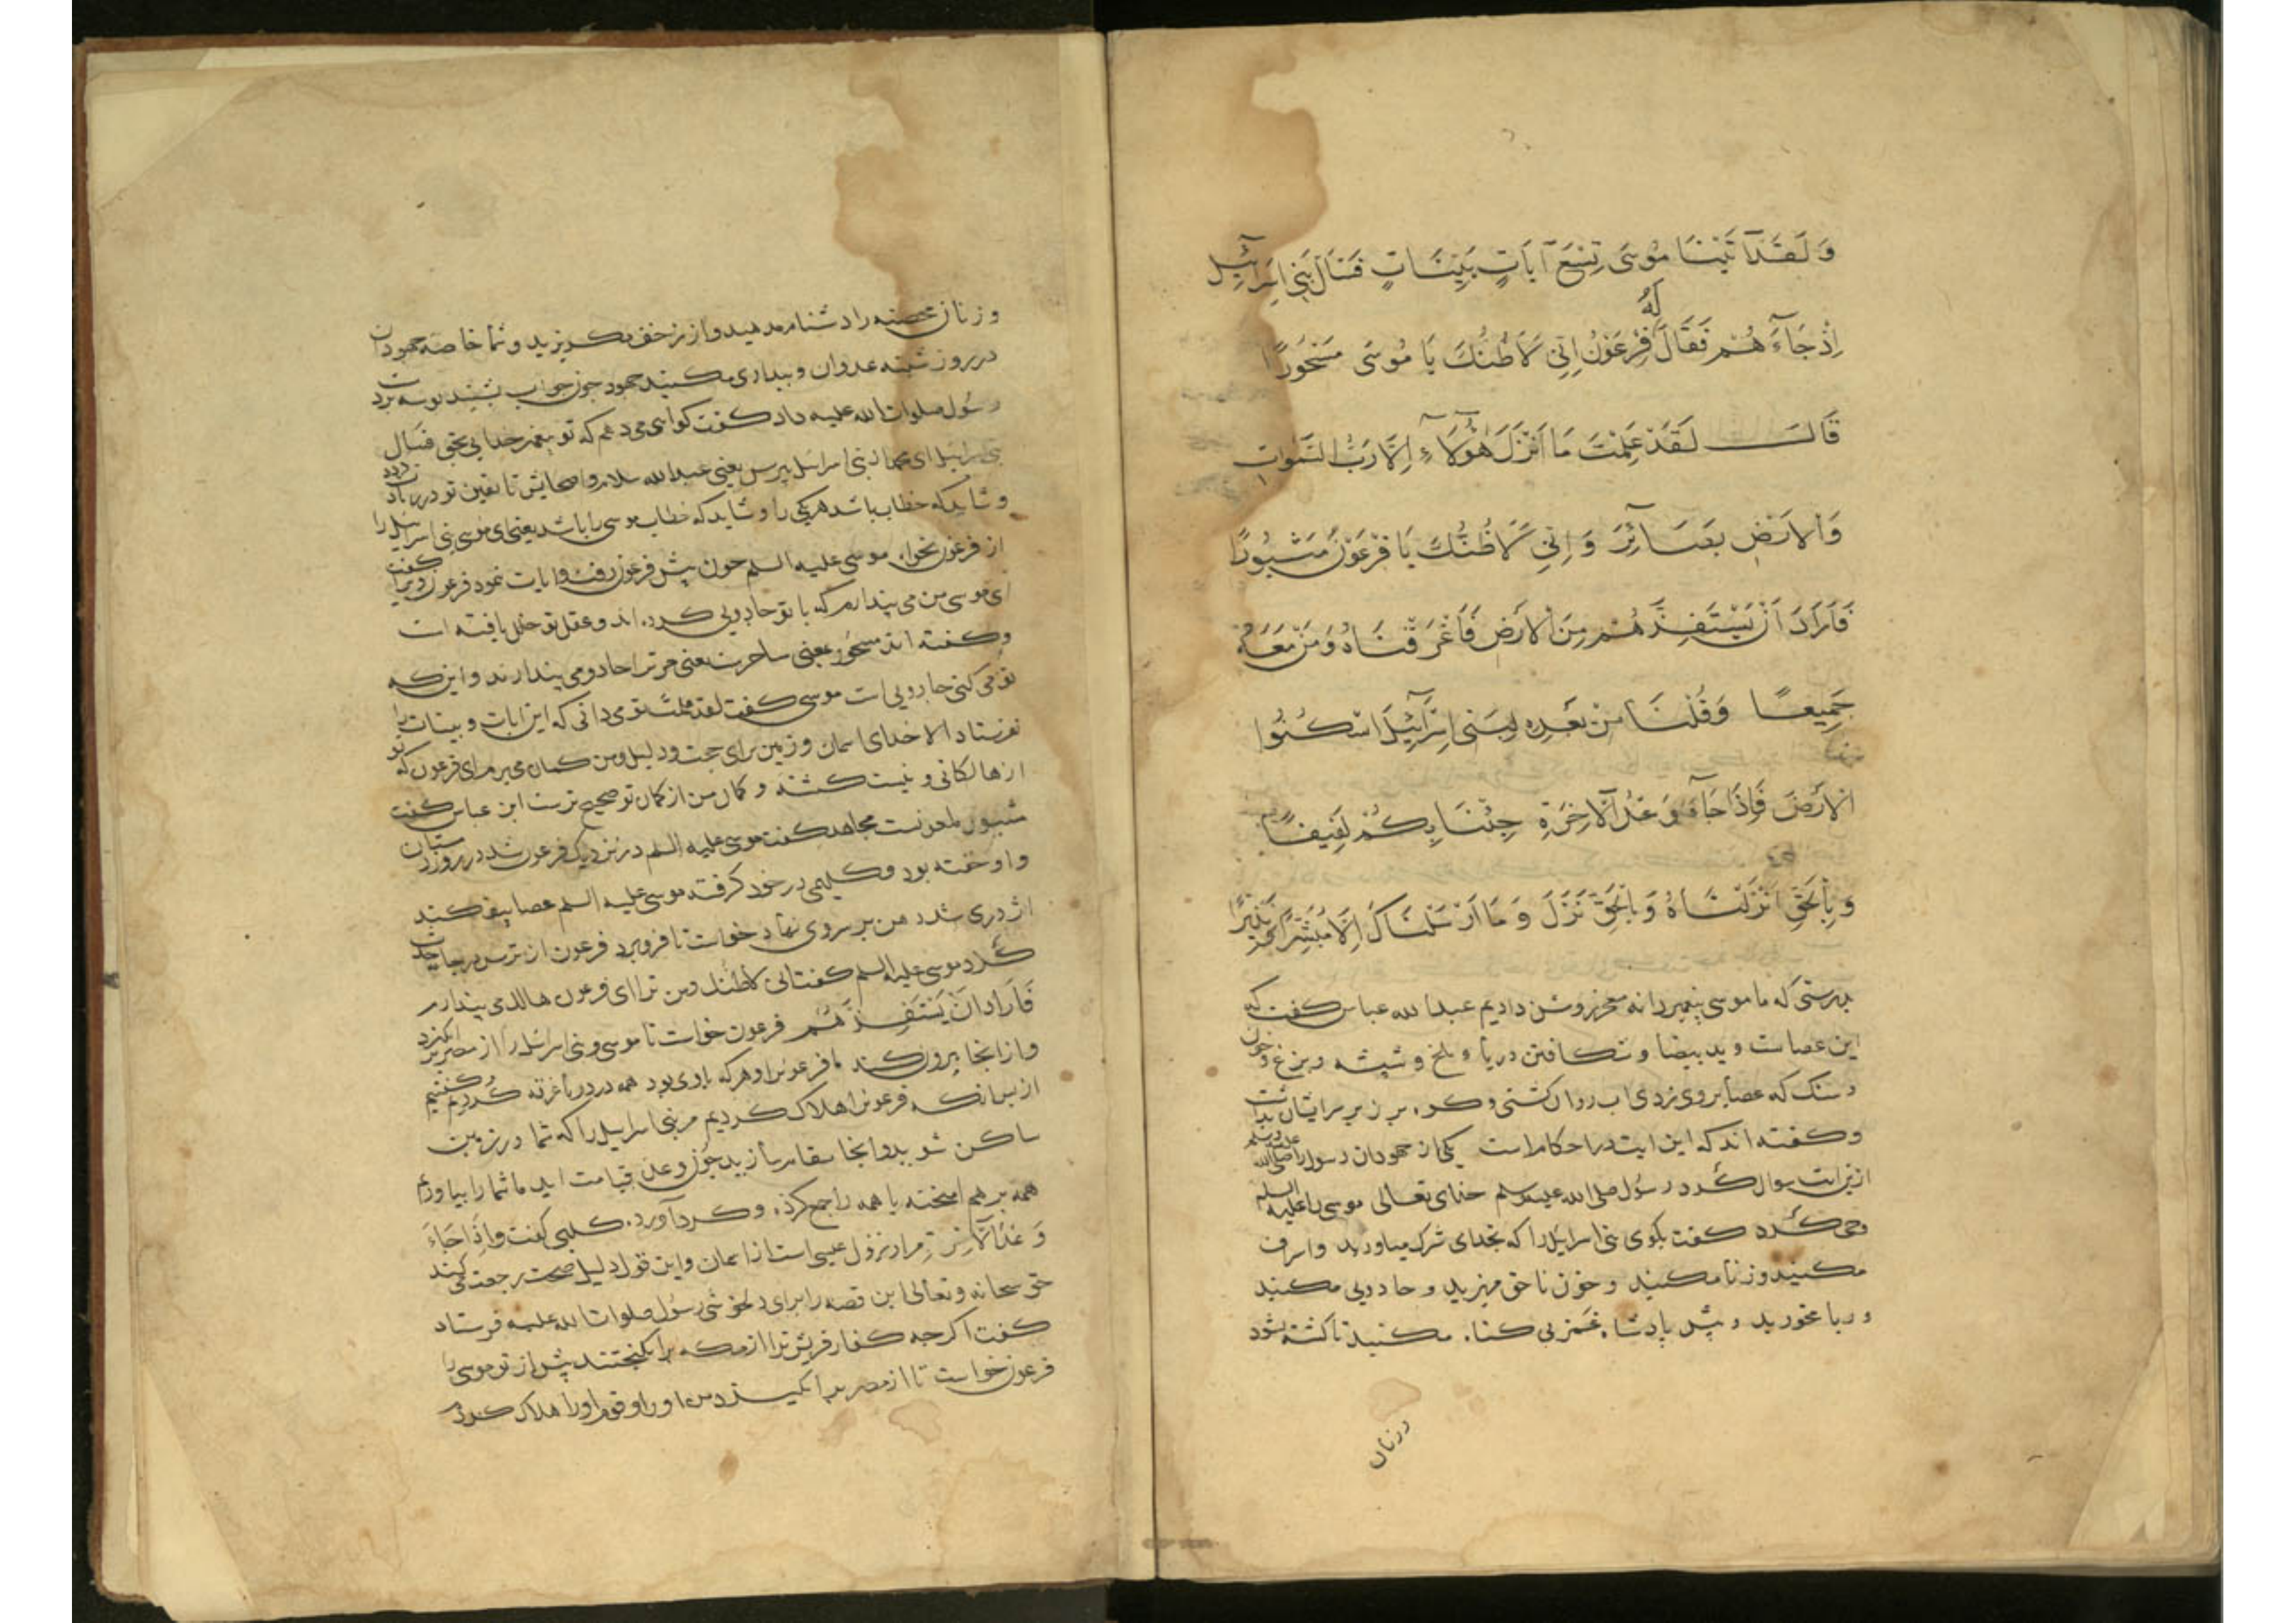 وَلَقَدْ آتَيْنَا مُوسَى تِسْعَ آيَاتٍ بَيِّنَاتٍ فَسْئَالْ بَنِي اِسْرَائِيلَ
اِذْ جَاءَهُمْ فَقَالَ لَهُ فِرْعَوْنُ اِنِّي لَاَظُنُّكَ يَا مُوسَى مَسْحُورًا
قَالَ لَقَدْ عَلِمْتَ مَا اَنْزَلَ هٰؤُلَاءِ اِلَّا رَبُّ السَّمٰوَاتِ
وَالْاَرْضِ بَصَائِرَ وَاِنِّي لَاَظُنُّكَ يَا فِرْعَوْنُ مَثْبُورًا
فَاَرَادَ اَنْ يَسْتَفِزَّهُمْ مِنَ الْاَرْضِ فَاَغْرَقْنَاهُ وَمَنْ مَعَهُ
جَمِيعًا وَقُلْنَا مِنْ بَعْدِهِ لِبَنِي اِسْرَائِيلَ اسْكُنُوا
الْاَرْضَ فَاِذَا جَاءَ وَعْدُ الْآخِرَةِ جِئْنَا بِكُمْ لَفِيفًا
وَبِالْحَقِّ اَنْزَلْنَاهُ وَبِالْحَقِّ نَزَلَ وَمَا اَرْسَلْنَاكَ اِلَّا مُبَشِّرًا وَنَذِيرًا
بدرستی که ما موسی پیغمبر را نه معجز روشن دادیم عبدالله عباس گفت که
این عصاست و ید بیضا و شکافتن دریا و ملخ و شپشه و بزغ و خون
و سنک که عصا بروی زدی اب روان کشتی و کوه بر زبر سرایشان بداشت
وکفته اند که این ایت در احکام است یکی از جهودان رسول را صلی الله علیه وسلم
ازین ایت سوال کرد رسول صلی الله علیه وسلم خدای تعالی موسی را علیه السلم
وحی کرد کفت بکوی بنی اسرایل را که بخدای شرک میاورید و اسراف
مکنید و زنا مکنید و خون ناحق مریزید و جادویی مکنید
و ربا مخورید و پیش پادشاه غمز بی کناه مکنید تا کشته شود
و زنان
و زنان محصنه را دشنام مدهید و از زحف مکریزید و شما خاصه جهودان
در روز شنبه عدوان و بیداری مکنید جهود چون جواب بشنید بوسه برد
رسول صلوات الله علیه داد کفت کواهی می دهم که تو پیغمبر خدایی بحق فسال
بنی اسرایل ای محمد از بنی اسرایل بپرس یعنی عبدالله سلام و اصحابش تا یقین تو زیادت
و شاید که خطاب باشد هر یکی را و شاید که خطاب موسی را باشد یعنی ای موسی بنی اسرایل را
از فرعون بخواه موسی علیه السلم چون پیش فرعون رفت و ایات نمود فرعون ویرا کفت
ای موسی من می پندارم که با تو جادویی کرده اند و عقل تو خلل یافته است
وکفته اند مسحور بمعنی ساحرست یعنی مر ترا جادو می پندارند و این که
تو می کنی جادویی است موسی کفت لقد علمت تو می دانی که این ایات و بینات را
نفرستاد الا خدای اسمان و زمین برای حجت و دلیل و من کمان می برم ای فرعون که تو
از هالکانی و نیست کشته و کمان من از کمان تو صحیح ترست ابن عباس کفت
مثبور ملعونست مجاهد کفت موسی علیه السلم در نزدیک فرعون شد در روز زمستان
و او خفته بود و کلیمی در خود کرفته موسی علیه السلم عصا بیفکند
اژدری شد دهن بر سر وی نهاد خواست تا فرو برد فرعون از ترس برجای
کرد موسی علیه السلم کفت انی لاظنک و من ترا ای فرعون هالک می پندارم
فَاَرَادَ اَنْ يَسْتَفِزَّهُمْ فرعون خواست تا موسی و بنی اسرایل را از مصر بر انکیزد
و از انجا بیرون کند ما فرعون را و هر که با وی بود همه در دریا غرقه کردیم و کفتیم
از پس انکه فرعون را هلاک کردیم مر بنی اسرایل را که شما در زمین
ساکن شوید و انجا مقام سازید چون وعده قیامت اید ما شما را بیاوریم
همه بر هم امیخته یا همه را جمع کرده و کرد آورده کلبی کفت واِذَا جَاءَ
وَعْدُ الْآخِرَةِ مراد نزول عیسی است از اسمان و این قول دلیل صحت رجعت می کند
حق سبحانه و تعالی این قصه را برای دلخوشی رسول صلوات الله علیه فرستاد
کفت اکرچه کفار قریش ترا از مکه برانکیختند پیش از تو موسی را
فرعون خواست تا از مصر برانکیزد من او را و قوم او را هلاک کردم